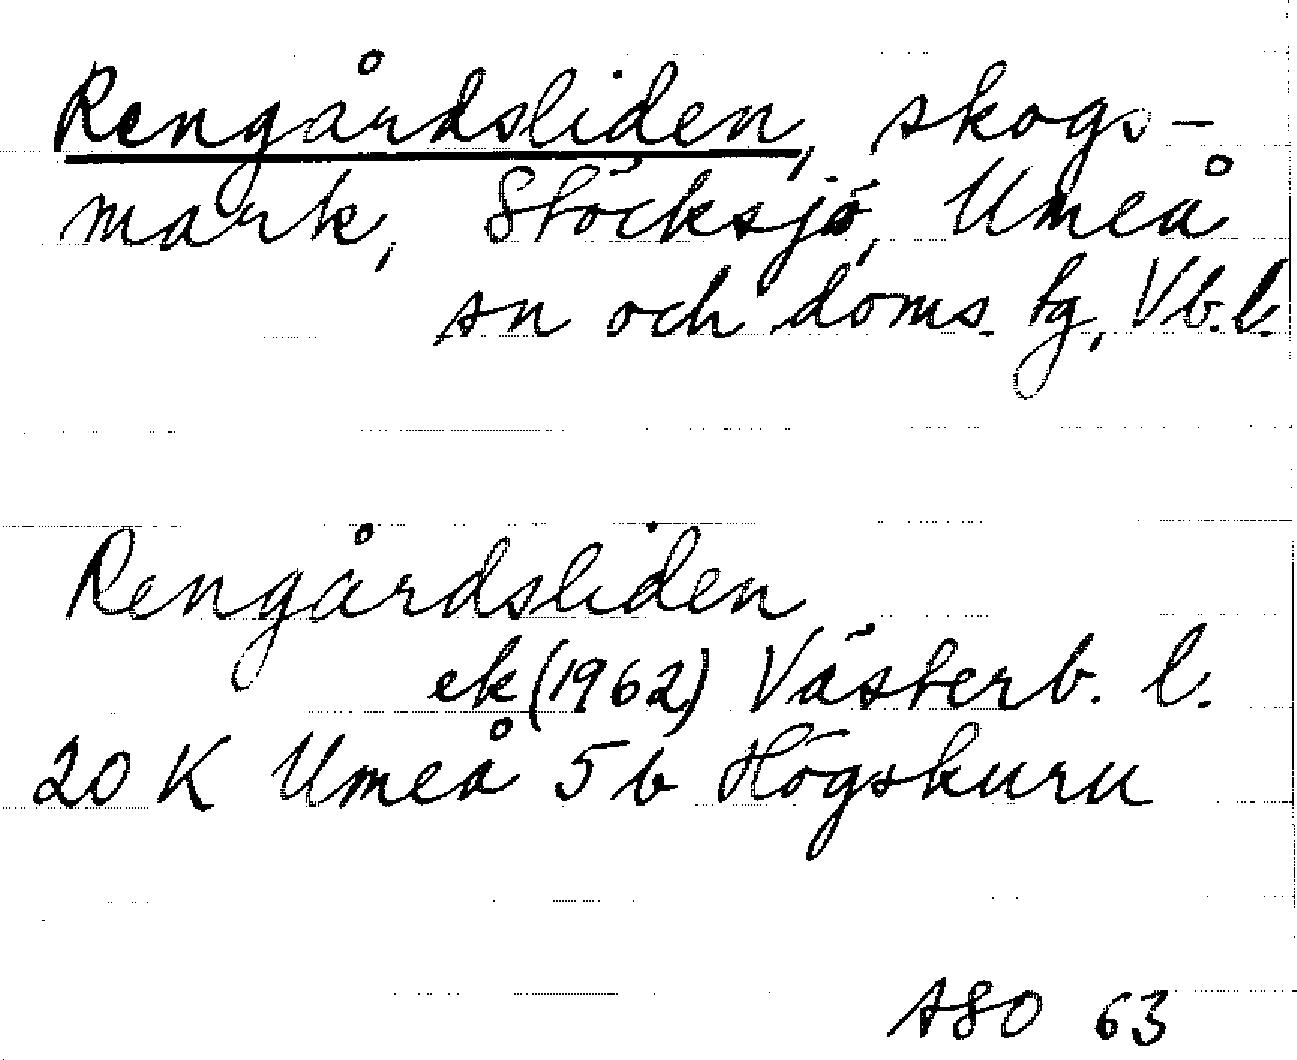 Rengårdsliden, skogs-
mark, Stöcksjö, Umeå
sn och doms. tg, Vb. l.
Rengårdsliden
ek (1962) Västerb. l.
20 K Umeå 5 b Högskuru
ASO 63